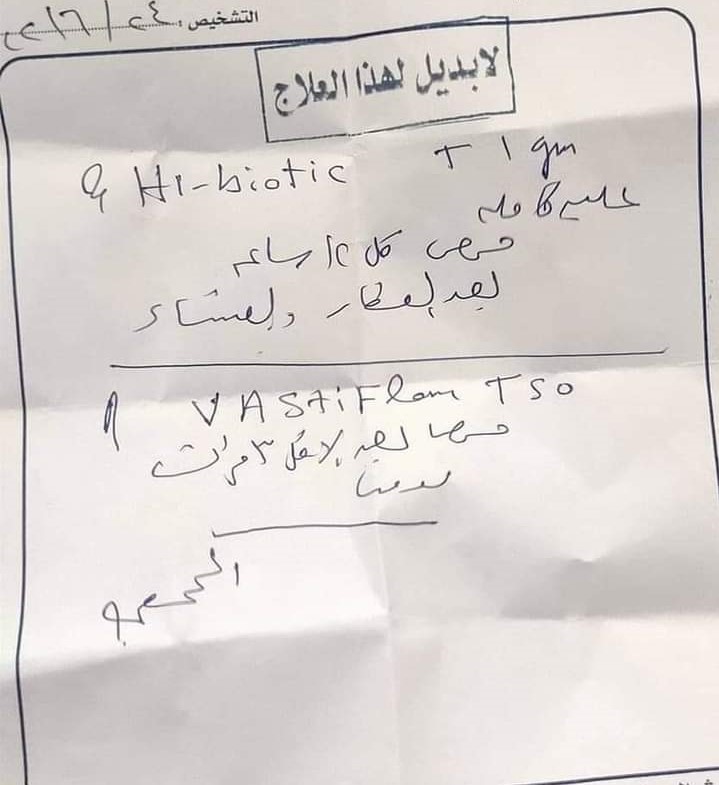 التشخيص: ٢٤/٦/٢٠٢
لا بديل لهذا العلاج
Hi-biotic T 1 gm
علبه كامله
قرص كل ١٢ ساعه
بعد الفطار والعشاء
VAStiFlam T50
قرصا بعد الاكل ٣ مرات
يوميا